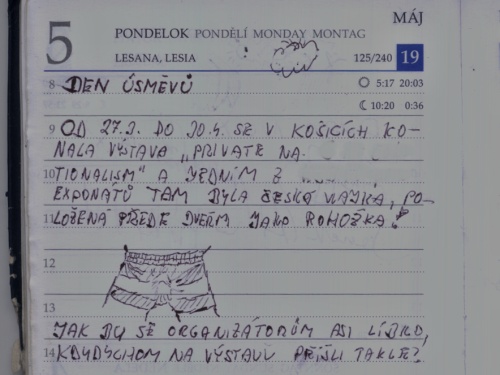 MÁJ
5 PONDELOK PONDĚLÍ MONDAY MONTAG
LESANA, LESIA 125/240 19
8 DEN ÚSMĚVŮ 5:17 20:03
10:20 0:36
9 OD 27.2. DO 20.4. SE V KOŠICÍCH KO-
NALA VÝSTAVA „PRIVATE NA
10 TIONALISM" A JEDNÍM Z
EXPONÁTŮ TAM BYLA ČESKÁ VLAJKA, PO-
11 LOŽENÁ PŘEDE DVEŘMI JAKO ROHOŽKA!
12
13
JAK BY SE ORGANIZÁTORŮM ASI LÍBILO,
14 KDYBYCHOM NA VÝSTAVU PŘIŠLI TAKLE?